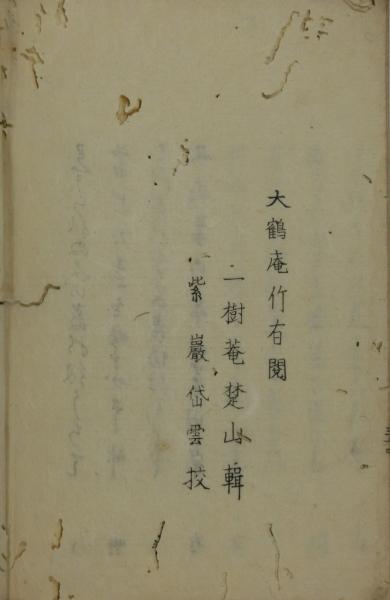 大鶴庵竹有閲
一樹菴楚山輯
紫巖岱雲挍